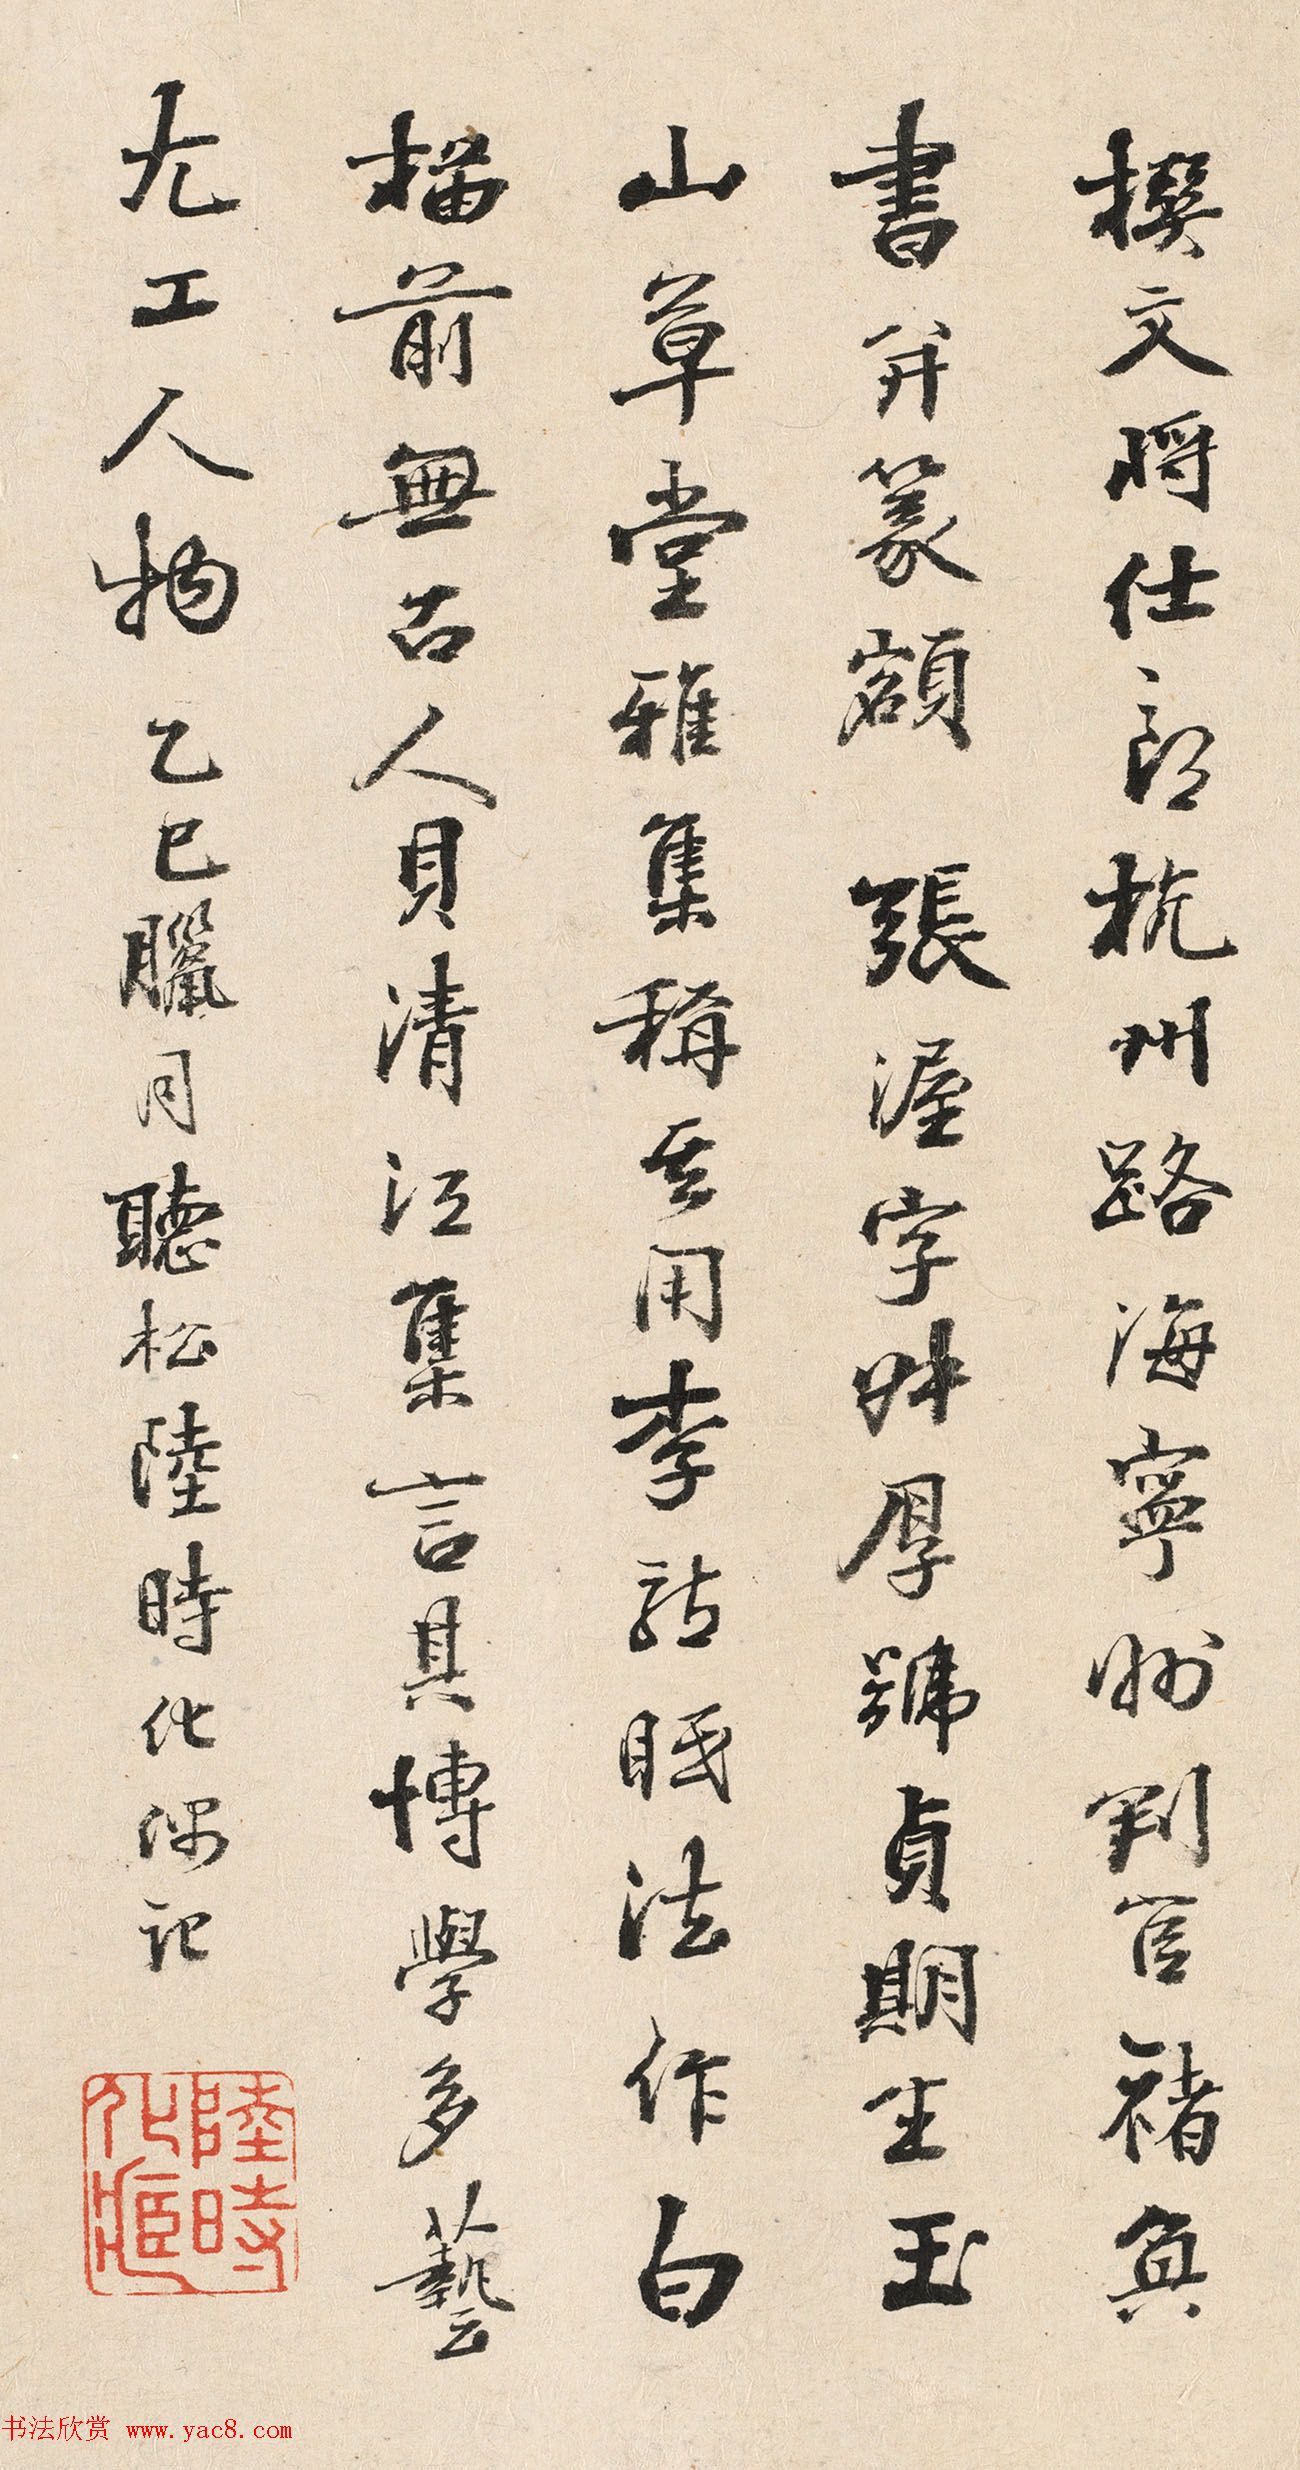 撰文將仕郎杭州路海寧州判官褚奐
書并篆額 張渥字叔厚號貞期生玉
山草堂雅集稱其用李龍眠法作白
描前無古人貝清江集言其博學多藝
尤工人物 乙巳臘月聽松陸時化偶記
陸時
化
书法欣赏 www.yac8.com